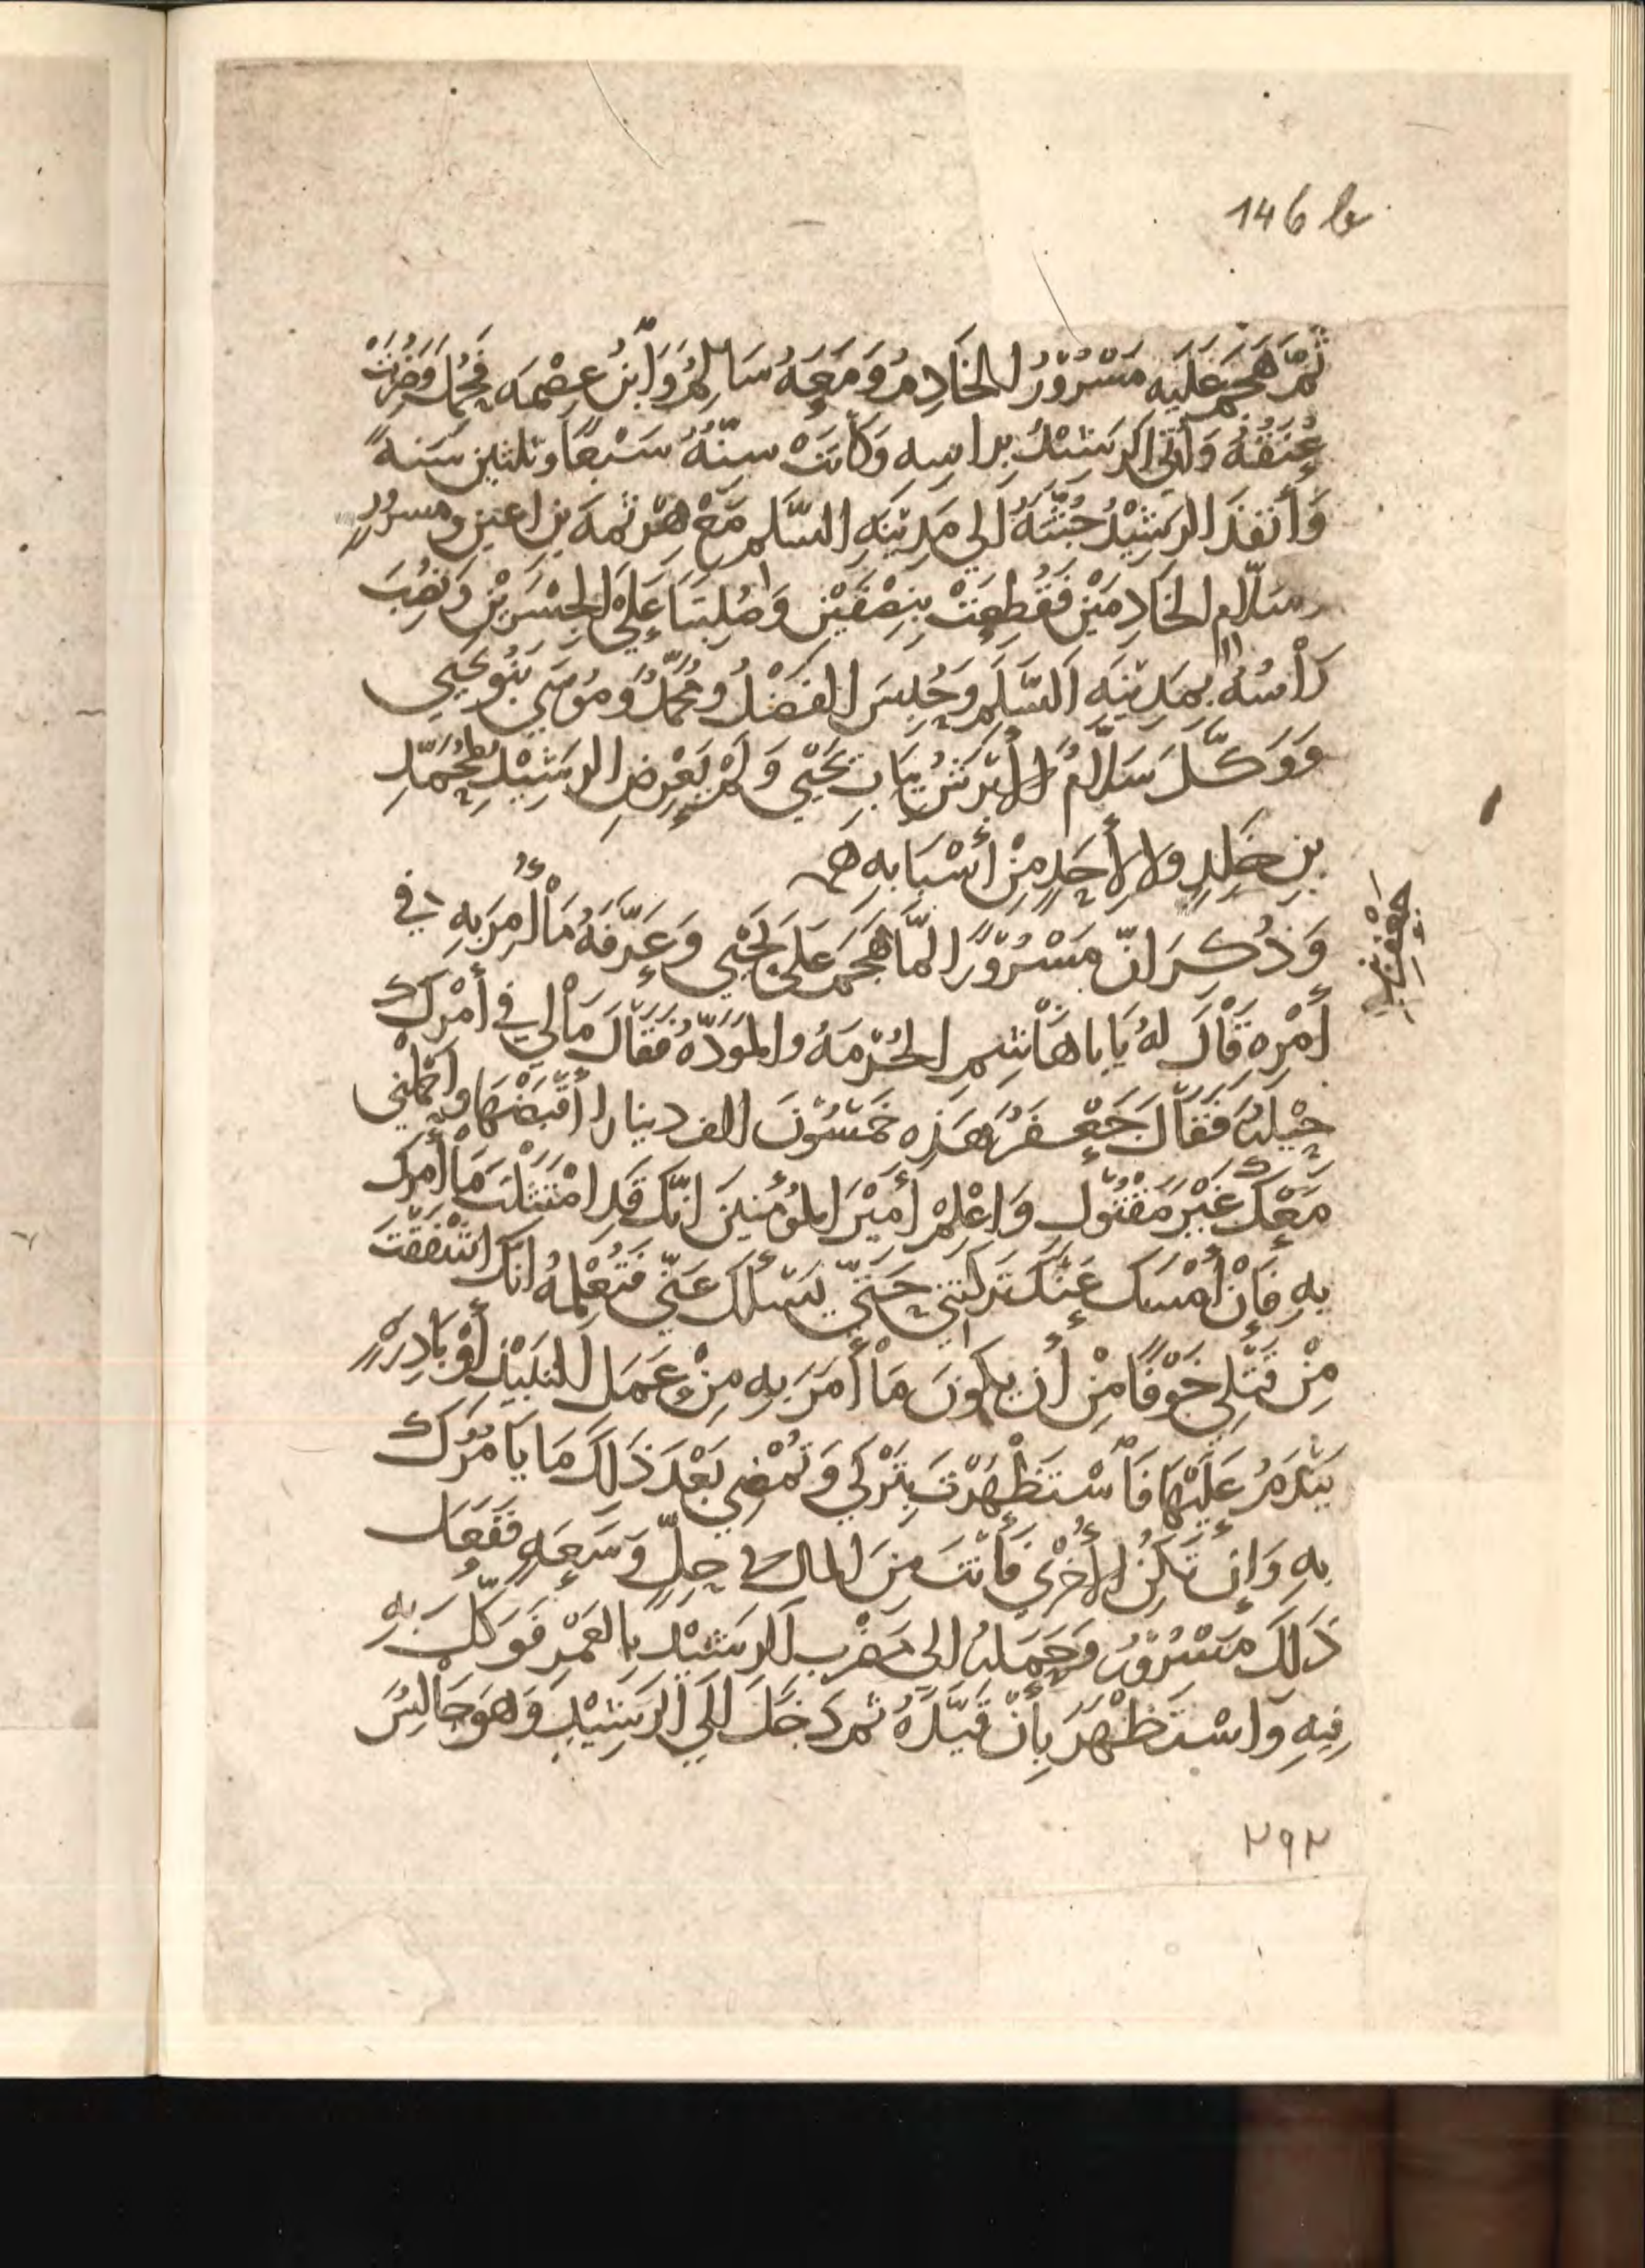 146 b
ثُمَّ هَجَمَ عَلَيهِ مَسْرُوْرُ الخَادِمُ وَمَعَهُ سَالِمُ وَابْنُ عِصْمَه فَحُمِلَ وَضُرِبَتْ
عُنُقُهُ وَأُتِيَ الرَشِيْدُ بِرَاسِهِ وَكَانَتْ سِنُّهُ سَبْعًا وثلثين سَنَهً
وَأَنْفَذَ الرَشِيْدُ جُثَّتَهُ الي مَدِيْنَهِ السَّلَمِ مَعْ هَرْثمهَ بن اعين ومسرُورٍ
وسَلّامٍ الخَادِمَيْنِ فَقُطِعَتْ بِنِصْفَيْنِ وَصُلِبَتَا عَلَى الجِسْرَيْنِ وَنُصِبَ
رَأْسُهُ بمَدِيْنَهِ السَّلَمِ وَحُبِسَ الفَضْلُ ومُحَمَّدُ وَمُوْسَي بَنُو يَحْيي
وَوَكَّلَ سَلَّامُ الأَبْرَشُ بِبَابِ يَحْيَي وَلَمْ يَعْرِضِ الرَشِيْدُ لمُحَمَّدِ
بنِ خَلِدٍ ولا لأَحَدٍ مِنْ أَسْبَابِهِ
وَذُكِرَ انّ مَسْرُوْرًا لمَّا هَجَمَ عَلَى يَحْيي وَعَرَّفَهُ مَا أُمِرَ بِهِ في
جعفر بن يحيى
أَمْرِهِ قَالَ لهُ يَابا هَاشِمِ الحُرْمَهُ والمَوَدَّهُ فَقَالَ مَا لِي فِي أَمْرِكَ
حِيْلَهُ فَقَالَ جَعْفَرُ هَذِهِ خَمْسُوْنَ الف دينار اقبَضْهَا واحْمِلْنِي
مَعَكَ غَيْرَ مَقْتُوْلٍ وَاعْلِمْ أَمِيْرَ المُؤمنينَ انّكَ قَدِ امْتَثَلْتَ مَا أَمَرَكَ
بِهِ فَاِنْ أَمْسَكَ عَنْكَ تَرَكْتَنِي حَتَّي يَسْأَلَكَ عَنِّي فَتُعْلِمُهُ انّكَ اشْفَقْتَ
مِنْ قَتْلِي خَوْفًا مِنْ أَن يكونَ مَا أَمَرَ بِهِ مِنْ عَمَلِ النَبِيْذِ أَوْ بَادِرَهٍ
يَنْدَمُ عَلَيْهَا فَاْسْتَظْهَرْتَ بِتَرْكِي وَتُمْضِي بَعْدَ ذَلكَ مَا يَامُرُكَ
بِهِ وَإِنْ تَكُنِ الأُخْرَي فَأَنْتَ مِنَ المال في حِلٍّ وَسَعَهٍ فَفَعَلَ
ذَلِكَ مَسْرُوْرُ وَحَمَلَهُ الى مَضْرِبِ الرَشِيْدِ بِالعَمْرِ فَوَكّلَ بِهِ
فِيهِ وَاسْتَظْهَرَ بِأَنْ قَيَّدَهُ ثم دَخَلَ اِلَي الرَشِيْدِ وَهوَ جَالِسُ
٢٩٢